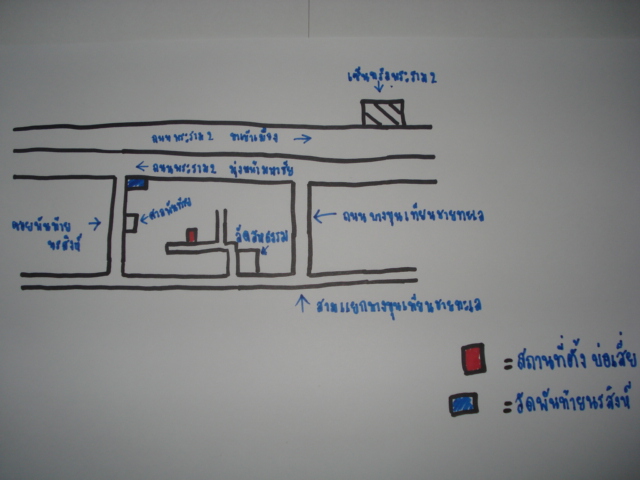 เซ็นทรัลพระราม 2
ถนนพระราม 2 ขาเข้าเมือง
ถนนพระราม 2 มุ่งหน้ามหาชัย
ซอยพันท้าย
นรสิงห์
ศาลพันท้าย
วัดสหธรรม
ถนนบางขุนเทียนชายทะเล
สามแยกบางขุนเทียนชายทะเล
=สถานที่ตั้ง บ่อเสี่ย
=วัดพันท้ายนรสิงห์